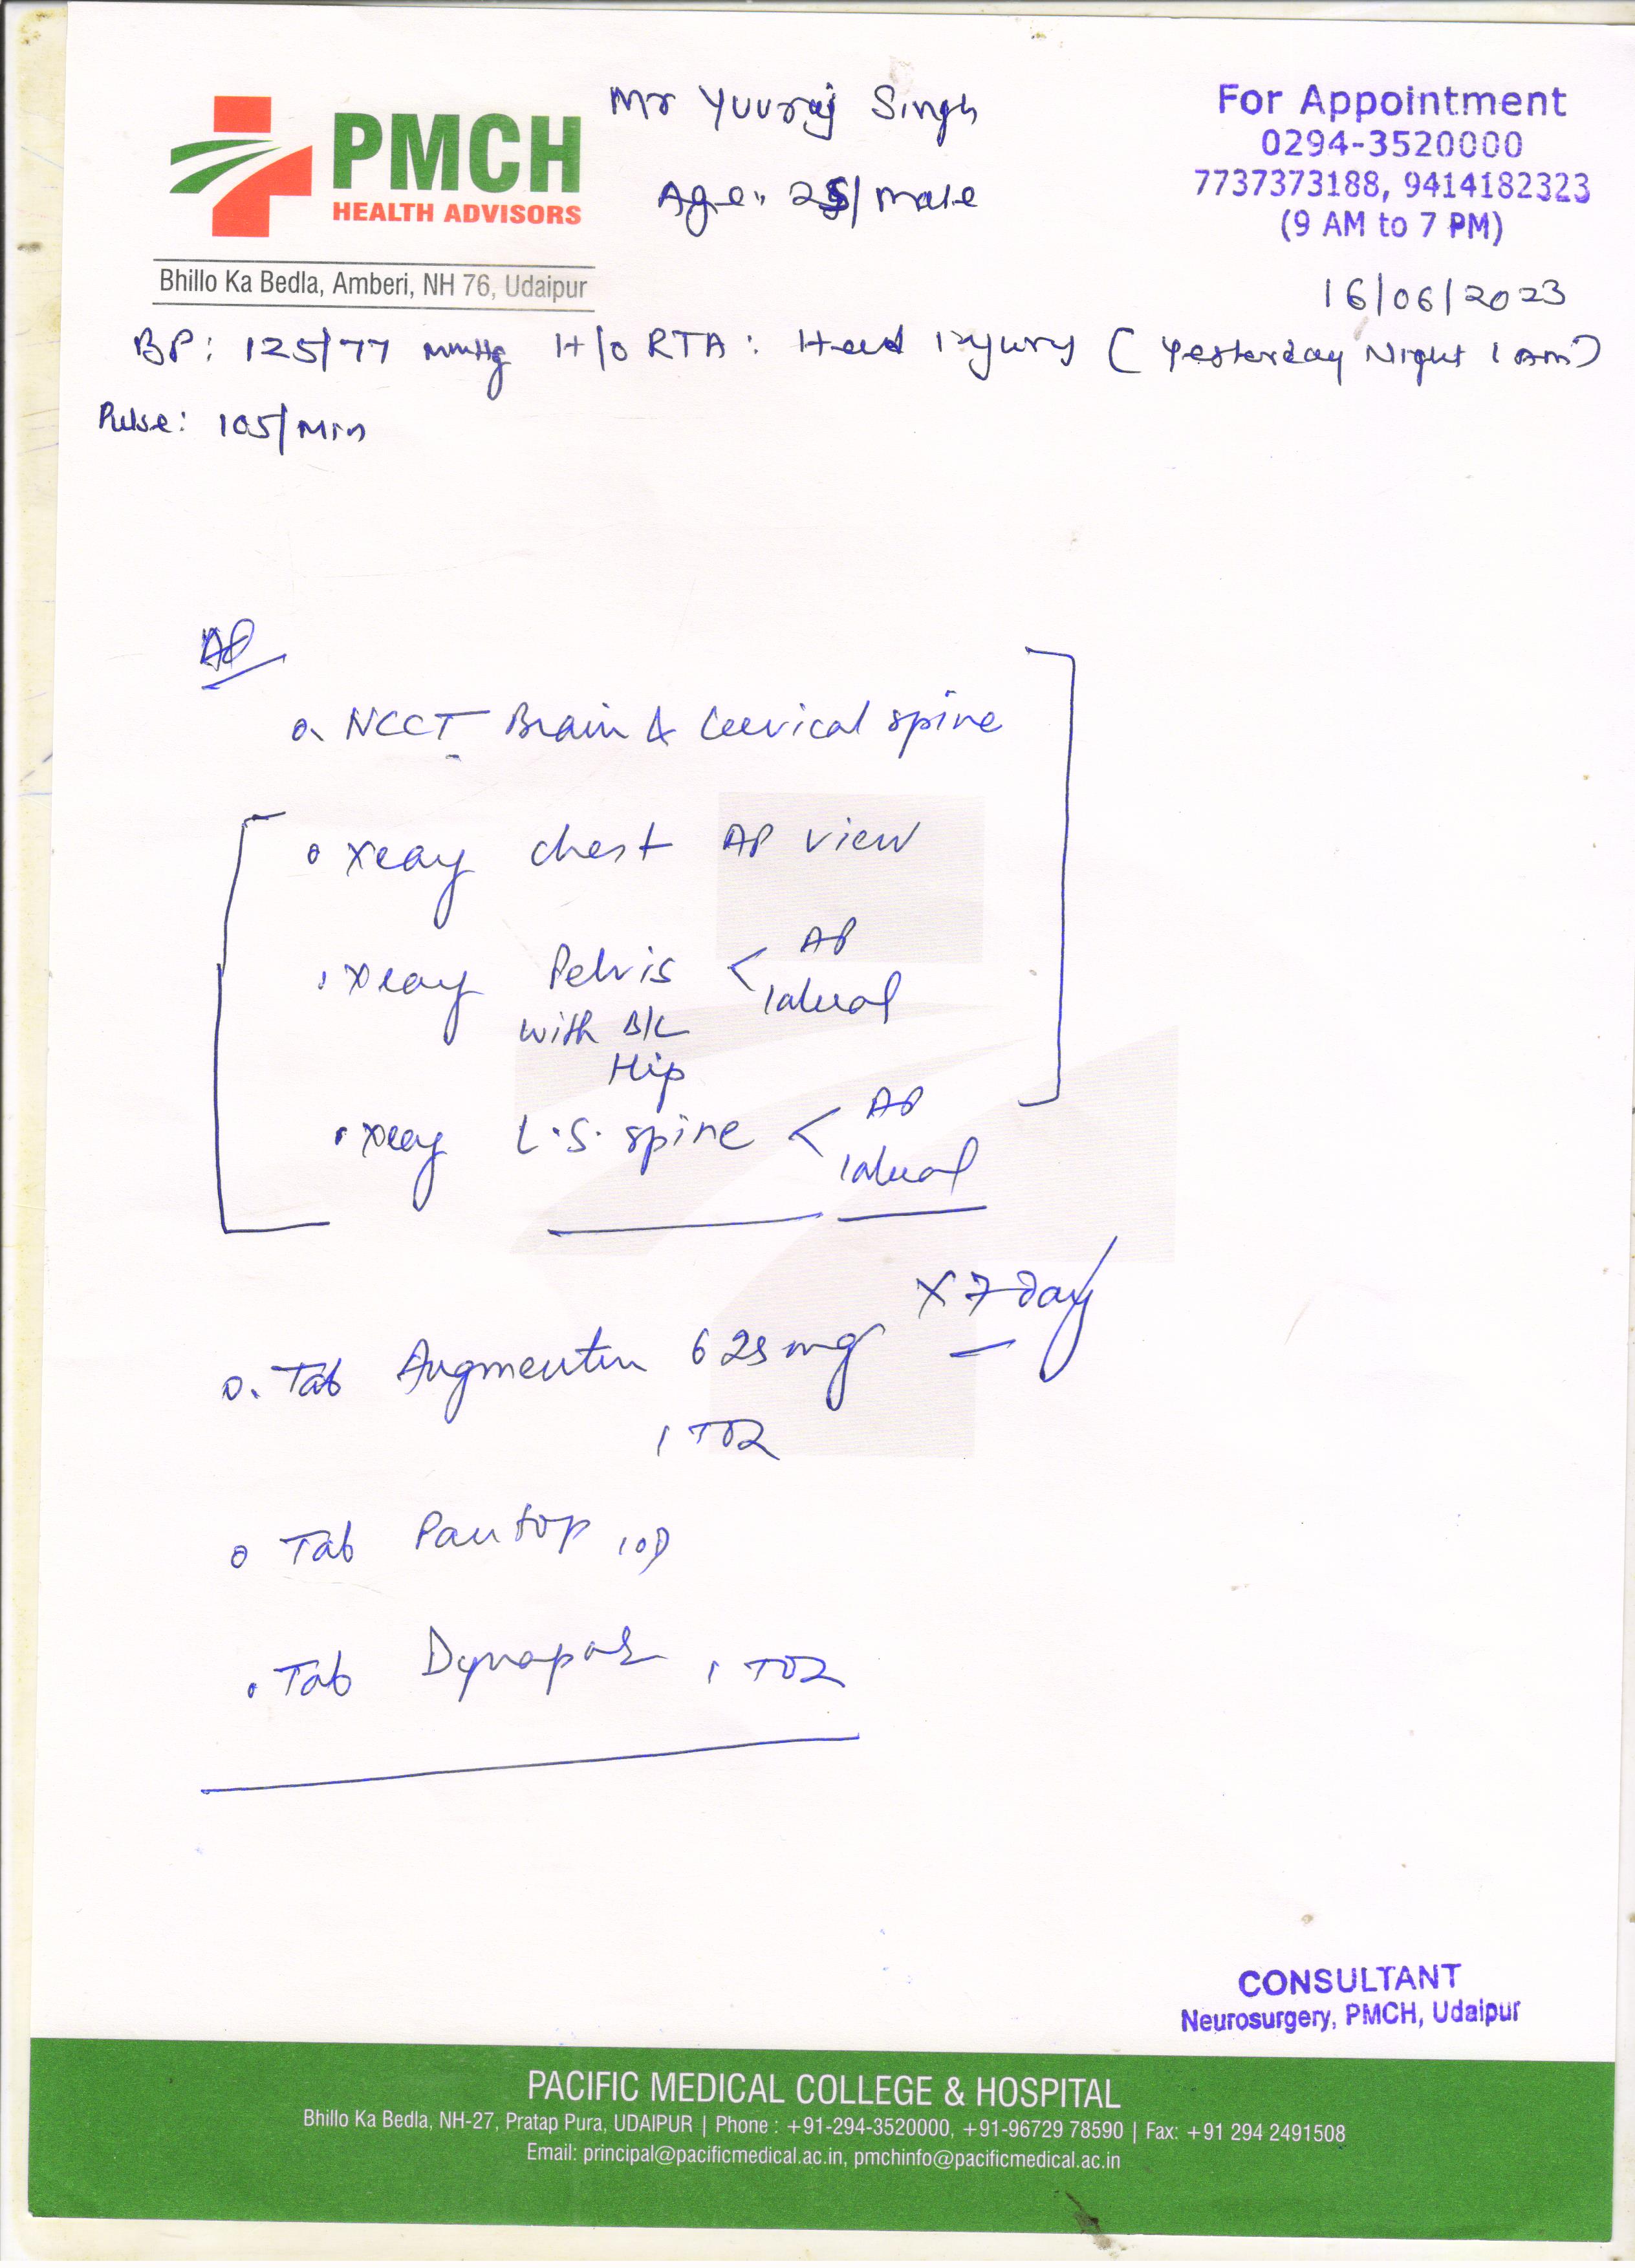 PMCH
HEALTH ADVISORS
Bhillo Ka Bedla, Amberi, NH 76, Udaipur
Mr Yuvraj Singh
Age: 25/male
For Appointment
0294-3520000
7737373188, 9414182323
(9 AM to 7 PM)
16/06/2023
BP: 125/77 mmHg H/o RTA: Head injury (Yesterday Night 1 Am)
Pulse: 105/Min
NCCT Brain & Cervical spine
Xray chest AP view
Xray Pelvis < AP
lateral
with B/L
Hip
Xray L.S. spine < AP
lateral
X 7 day
Tab Augmentin 625 mg
Tab Pantop 1 OD
Tab Dynapar
CONSULTANT
Neurosurgery, PMCH, Udaipur
PACIFIC MEDICAL COLLEGE & HOSPITAL
Bhillo Ka Bedla, NH-27, Pratap Pura, UDAIPUR | Phone : +91-294-3520000, +91-96729 78590 | Fax: +91 294 2491508
Email: principal@pacificmedical.ac.in, pmchinfo@pacificmedical.ac.in